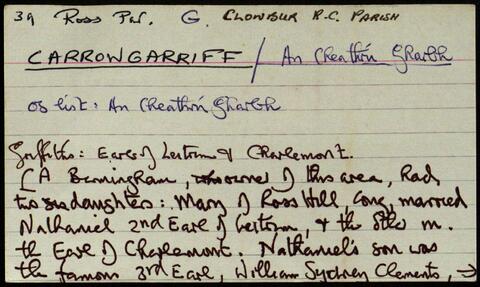 39 Ross Par. G. CLONBUR R.C. PARISH
CARROWGARRIFF / An Cheathrú Gharbh
OS list: An Cheathrú Gharbh
Griffiths: Earls of Leitrim & Charlemont.
[A Bermingham, owner of this area, had
two daughters: Mary of Ross Hill, Cong, married
Nathaniel 2nd Earl of Leitrim, & the other m.
the Earl of Charlemont. Nathaniel's son was
the famous 3rd Earl, William Sydney Clements, →